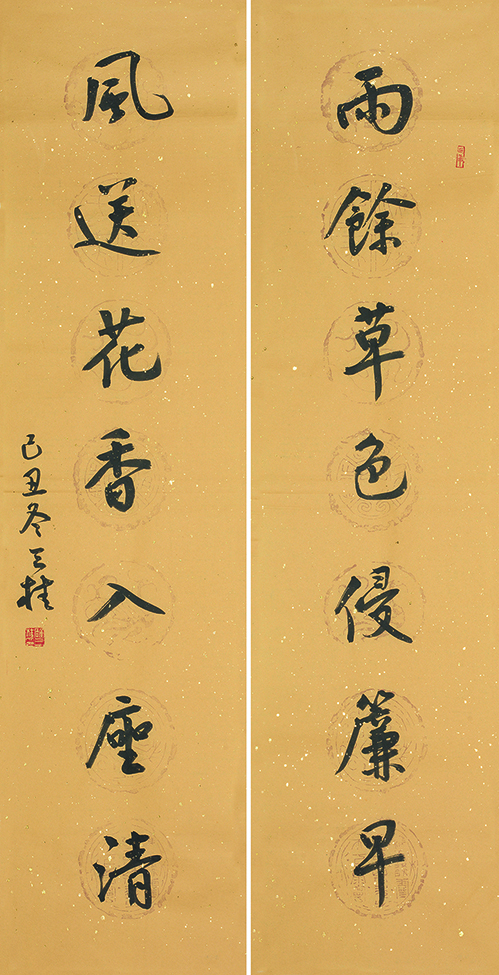 雨餘草色侵簾早
風送花香入座清
己丑冬三桂